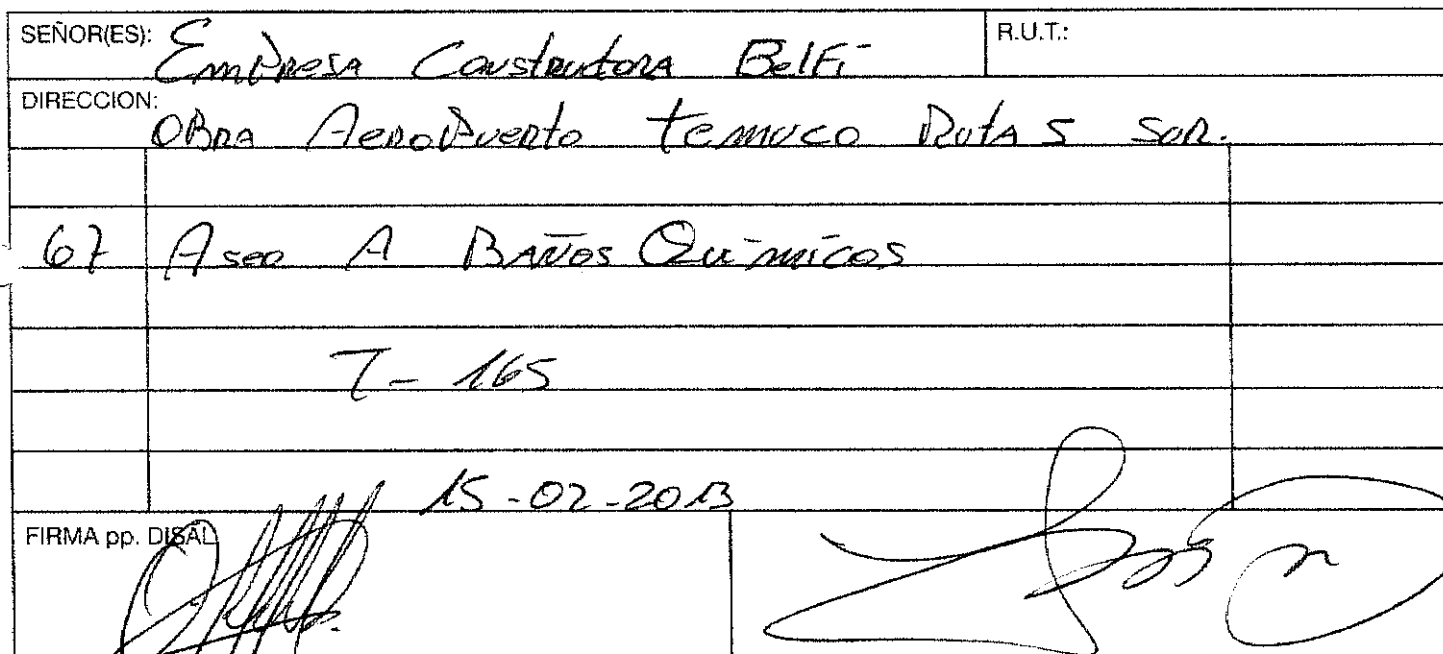 SEÑOR(ES): Empresa Constructora Belfi R.U.T.:
DIRECCION: Obra Aeropuerto Temuco Ruta 5 Sur.
67 Aseo A Baños Químicos
T- 165
15-02-2013
FIRMA pp. DISAL